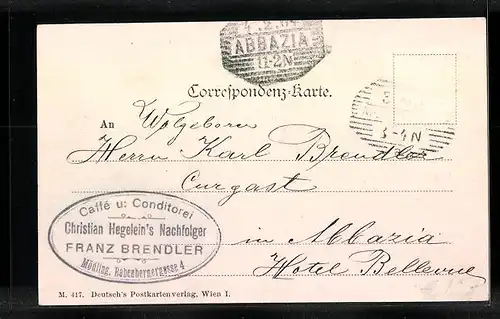 4.2.04
ABBAZIA
11-2N
Correspondenz-Karte.
3-4N
An Wolgeboren
Herrn Karl Brendler
Curgast
Caffé u: Conditorei
Christian Hegelein's Nachfolger
FRANZ BRENDLER
Mödling, Babenbergergasse 4
in Abbazia
Hotel Bellevue
M. 417. Deutsch's Postkartenverlag, Wien I.